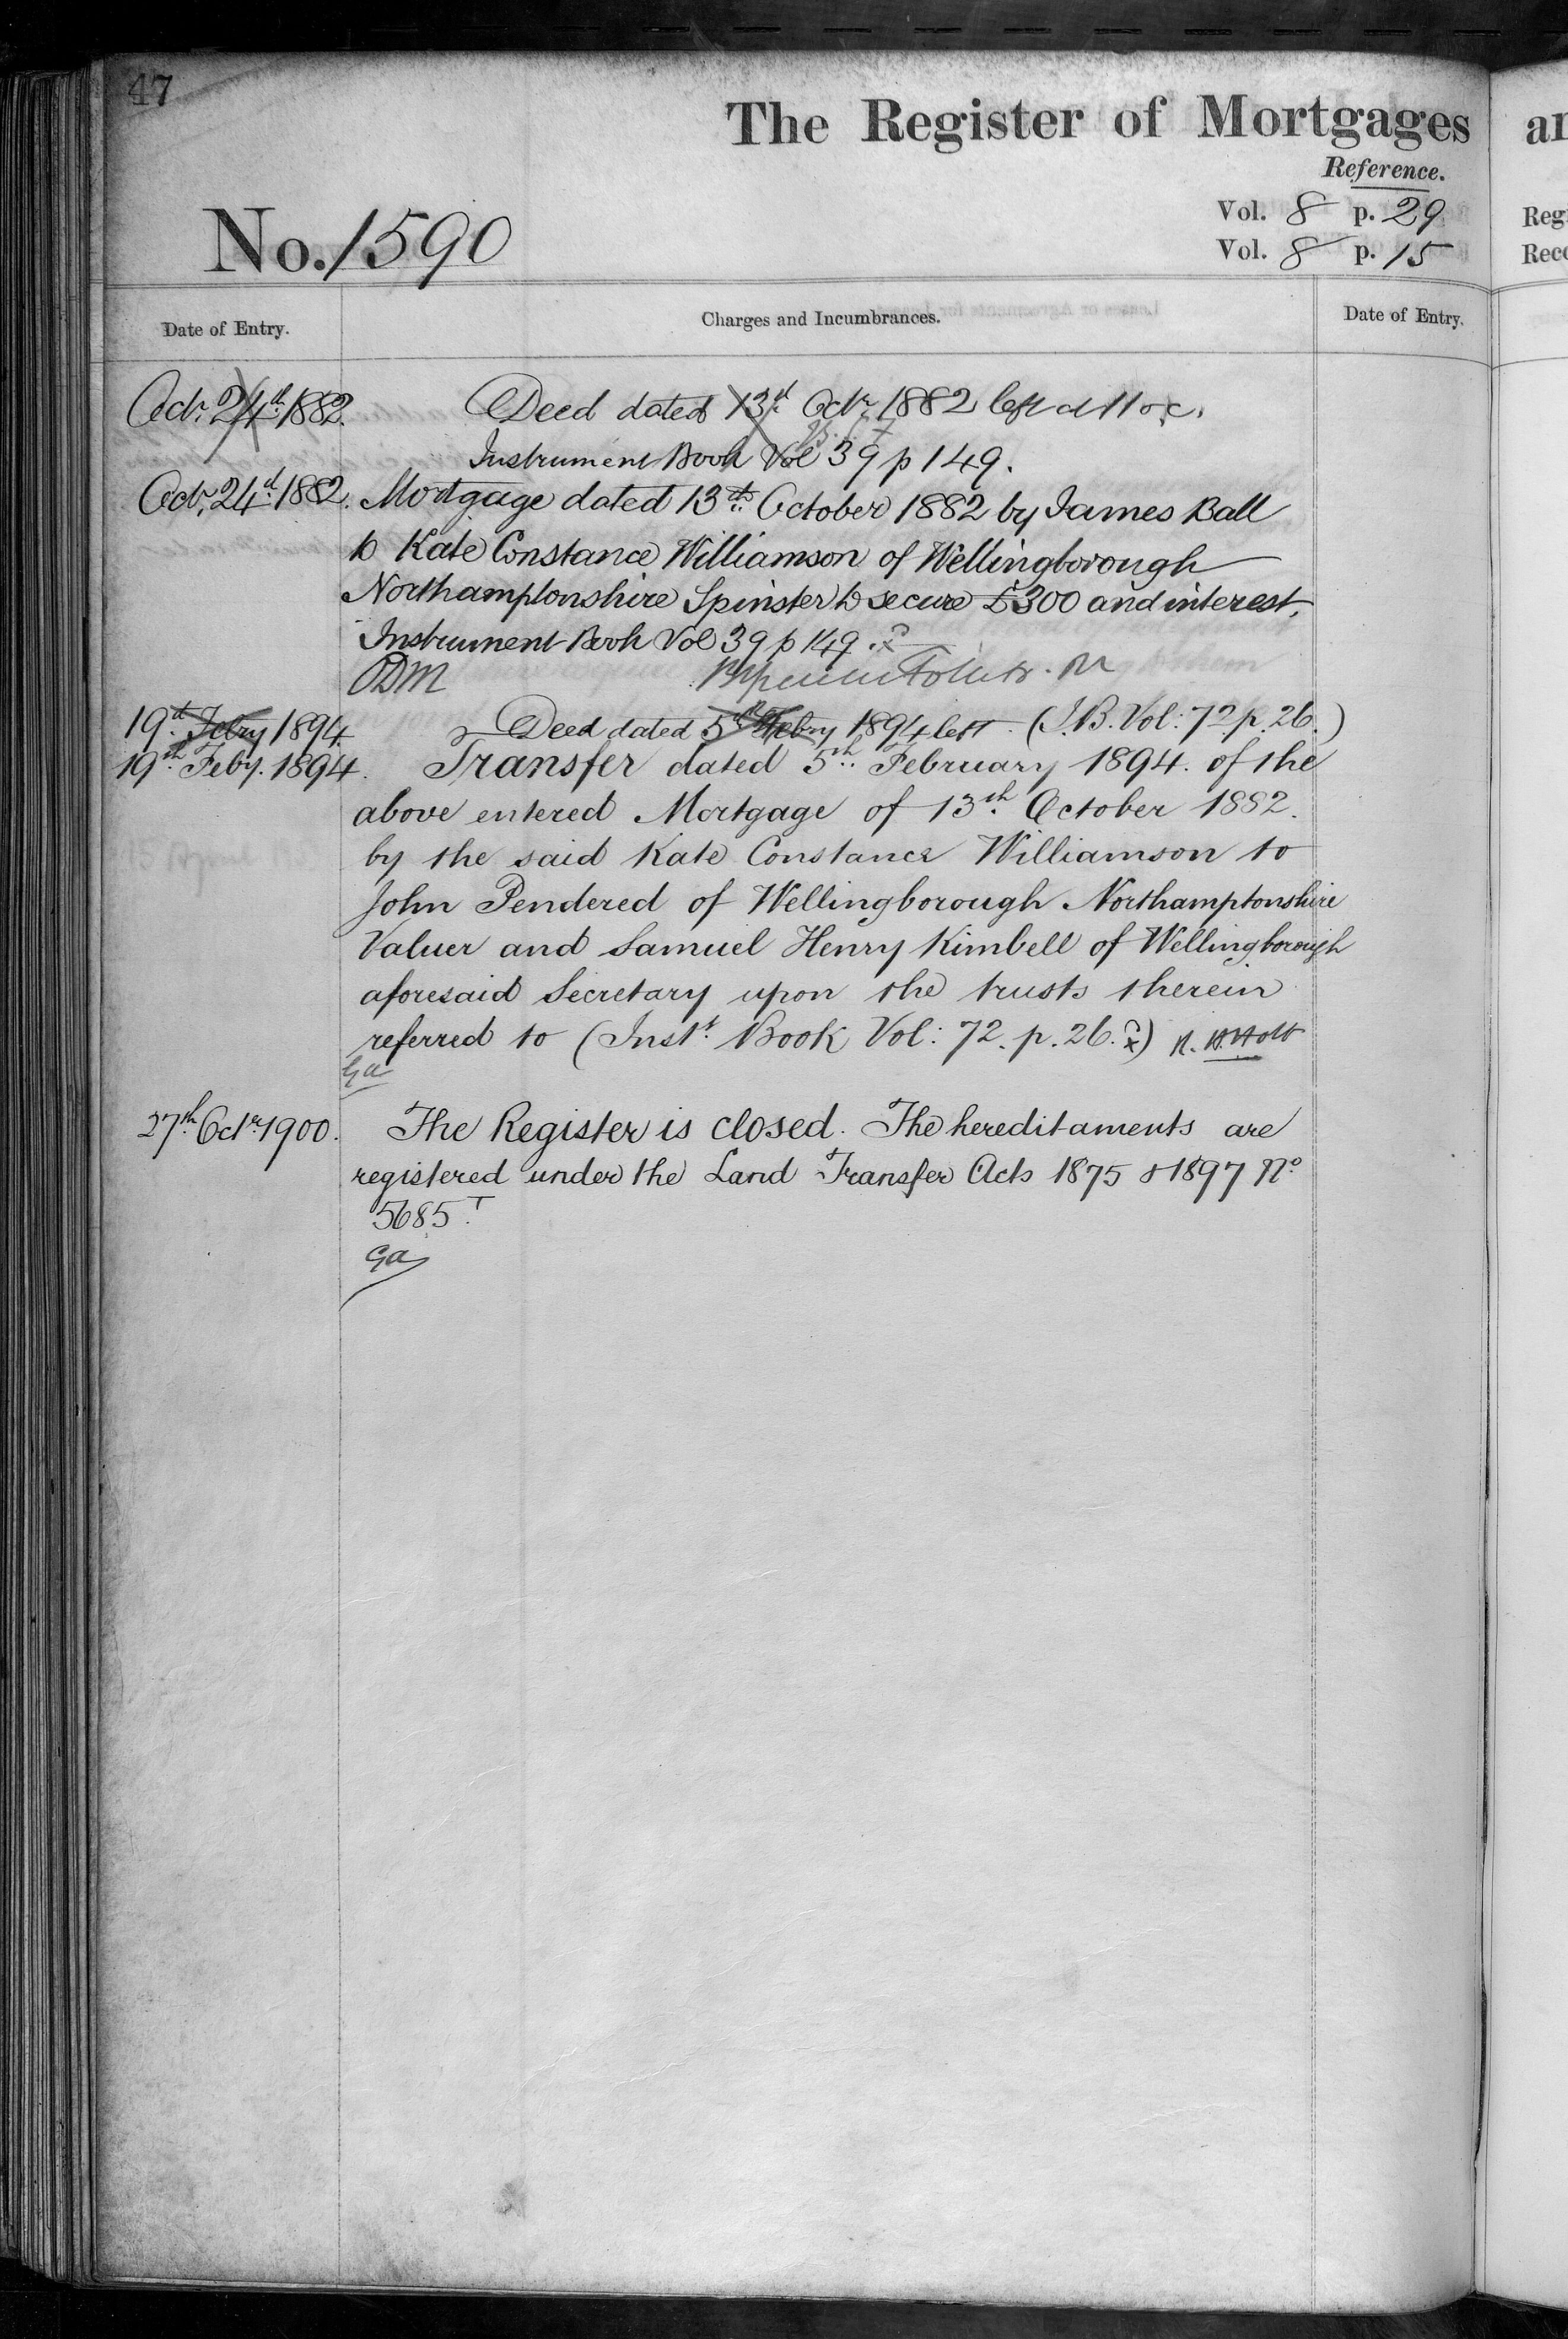 47
The Register of Mortgages
Reference.
Vol. 8 p. 29
No. 1590
Vol. 8 p. 15
Date of Entry.
Charges and Incumbrances.
Date of Entry.
Octr. 24th 1882. Deed dated 13th Octr. 1882 left at 11 o.c.
Instrument Book Vol 39 p 149.
Octr. 24th 1882. Mortgage dated 13th October 1882 by James Ball
to Kate Constance Williamson of Wellingborough
Northamptonshire Spinster to secure £300 and interest.
Instrument Book Vol 39 p 149.
ODM
19th Febry 1894. Deed dated 5th Febry 1894 left (I.B. Vol: 72 p. 26.)
19th Feby. 1894. Transfer dated 5th February 1894. of the
above entered Mortgage of 13th October 1882.
by the said Kate Constance Williamson to
John Pendered of Wellingborough Northamptonshire
Valuer and Samuel Henry Kimbell of Wellingborough
aforesaid Secretary upon the trusts therein
referred to (Inst. Book Vol: 72. p. 26.) R. H. Holt
Ga
27th Octr. 1900. The Register is closed. The hereditaments are
registered under the Land Transfer Acts 1875 & 1897 No
5685.T
Ga
ar
Reg
Reco